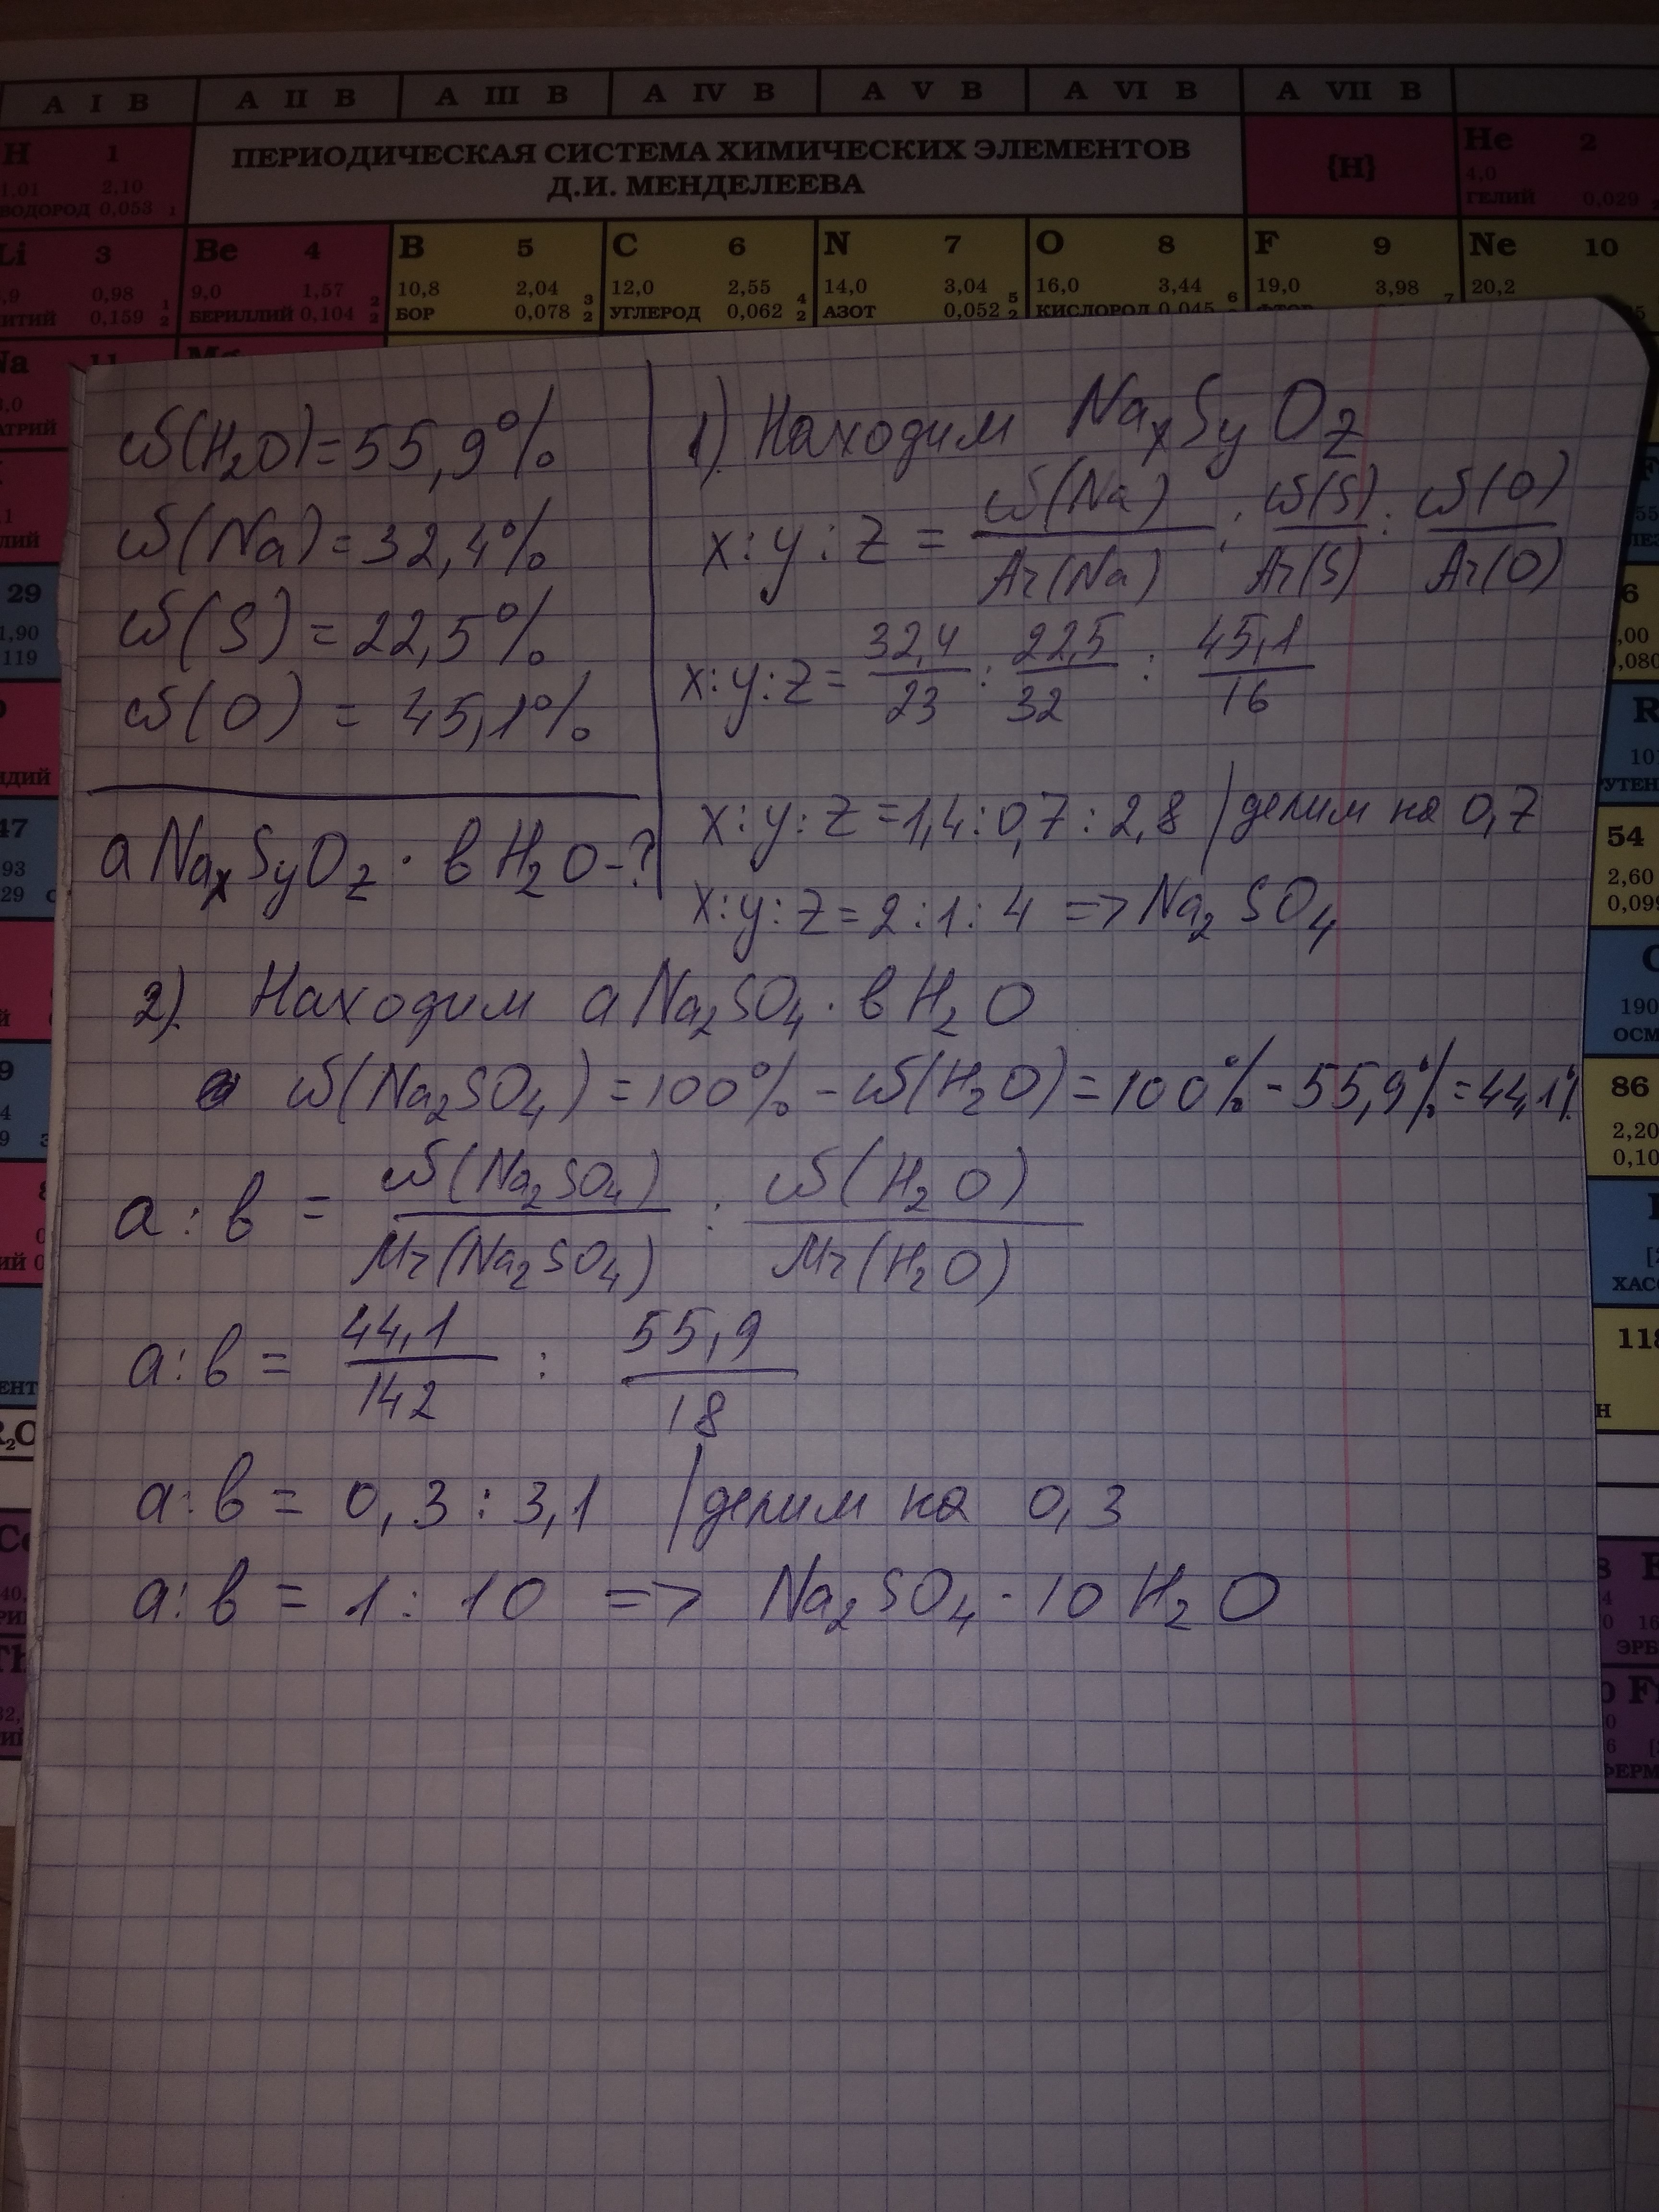 А I В А II В А III В А IV В А V В А VI В А VII В
ПЕРИОДИЧЕСКАЯ СИСТЕМА ХИМИЧЕСКИХ ЭЛЕМЕНТОВ
Д.И. МЕНДЕЛЕЕВА
H 1
1,01 2,10
ВОДОРОД 0,053 1
{H}
He 2
4,0
ГЕЛИЙ 0,029
Li 3
0,98
ЛИТИЙ 0,159
Be 4
9,0 1,57
БЕРИЛЛИЙ 0,104
B 5
10,8 2,04
БОР 0,078
C 6
12,0 2,55
УГЛЕРОД 0,062
N 7
14,0 3,04
АЗОТ 0,052
O 8
16,0 3,44
КИСЛОРОД 0,045
F 9
19,0 3,98
ФТОР
Ne 10
20,2
ω(H₂O)=55,9%
ω(Na)=32,4%
ω(S)=22,5%
ω(O) = 45,1%
a NaₓSyOz · в H₂O-?
1). Находим NaₓSyOz
x:y:z = ω(Na)/Ar(Na) : ω(S)/Ar(S) : ω(O)/Ar(O)
x:y:z= 32,4/23 : 22,5/32 : 45,1/16
x:y:z=1,4:0,7:2,8 | делим на 0,7
x:y:z=2:1:4 => Na₂SO₄
2). Находим a Na₂SO₄ · в H₂O
ω(Na₂SO₄)=100%-ω(H₂O)=100%-55,9%=44,1%
a:в = ω(Na₂SO₄)/Mr(Na₂SO₄) : ω(H₂O)/Mr(H₂O)
a:в = 44,1/142 : 55,9/18
a:в = 0,3:3,1 | делим на 0,3
a:в = 1:10 => Na₂SO₄ · 10 H₂O
29
119
47
54
2,60
86
2,20
190
118